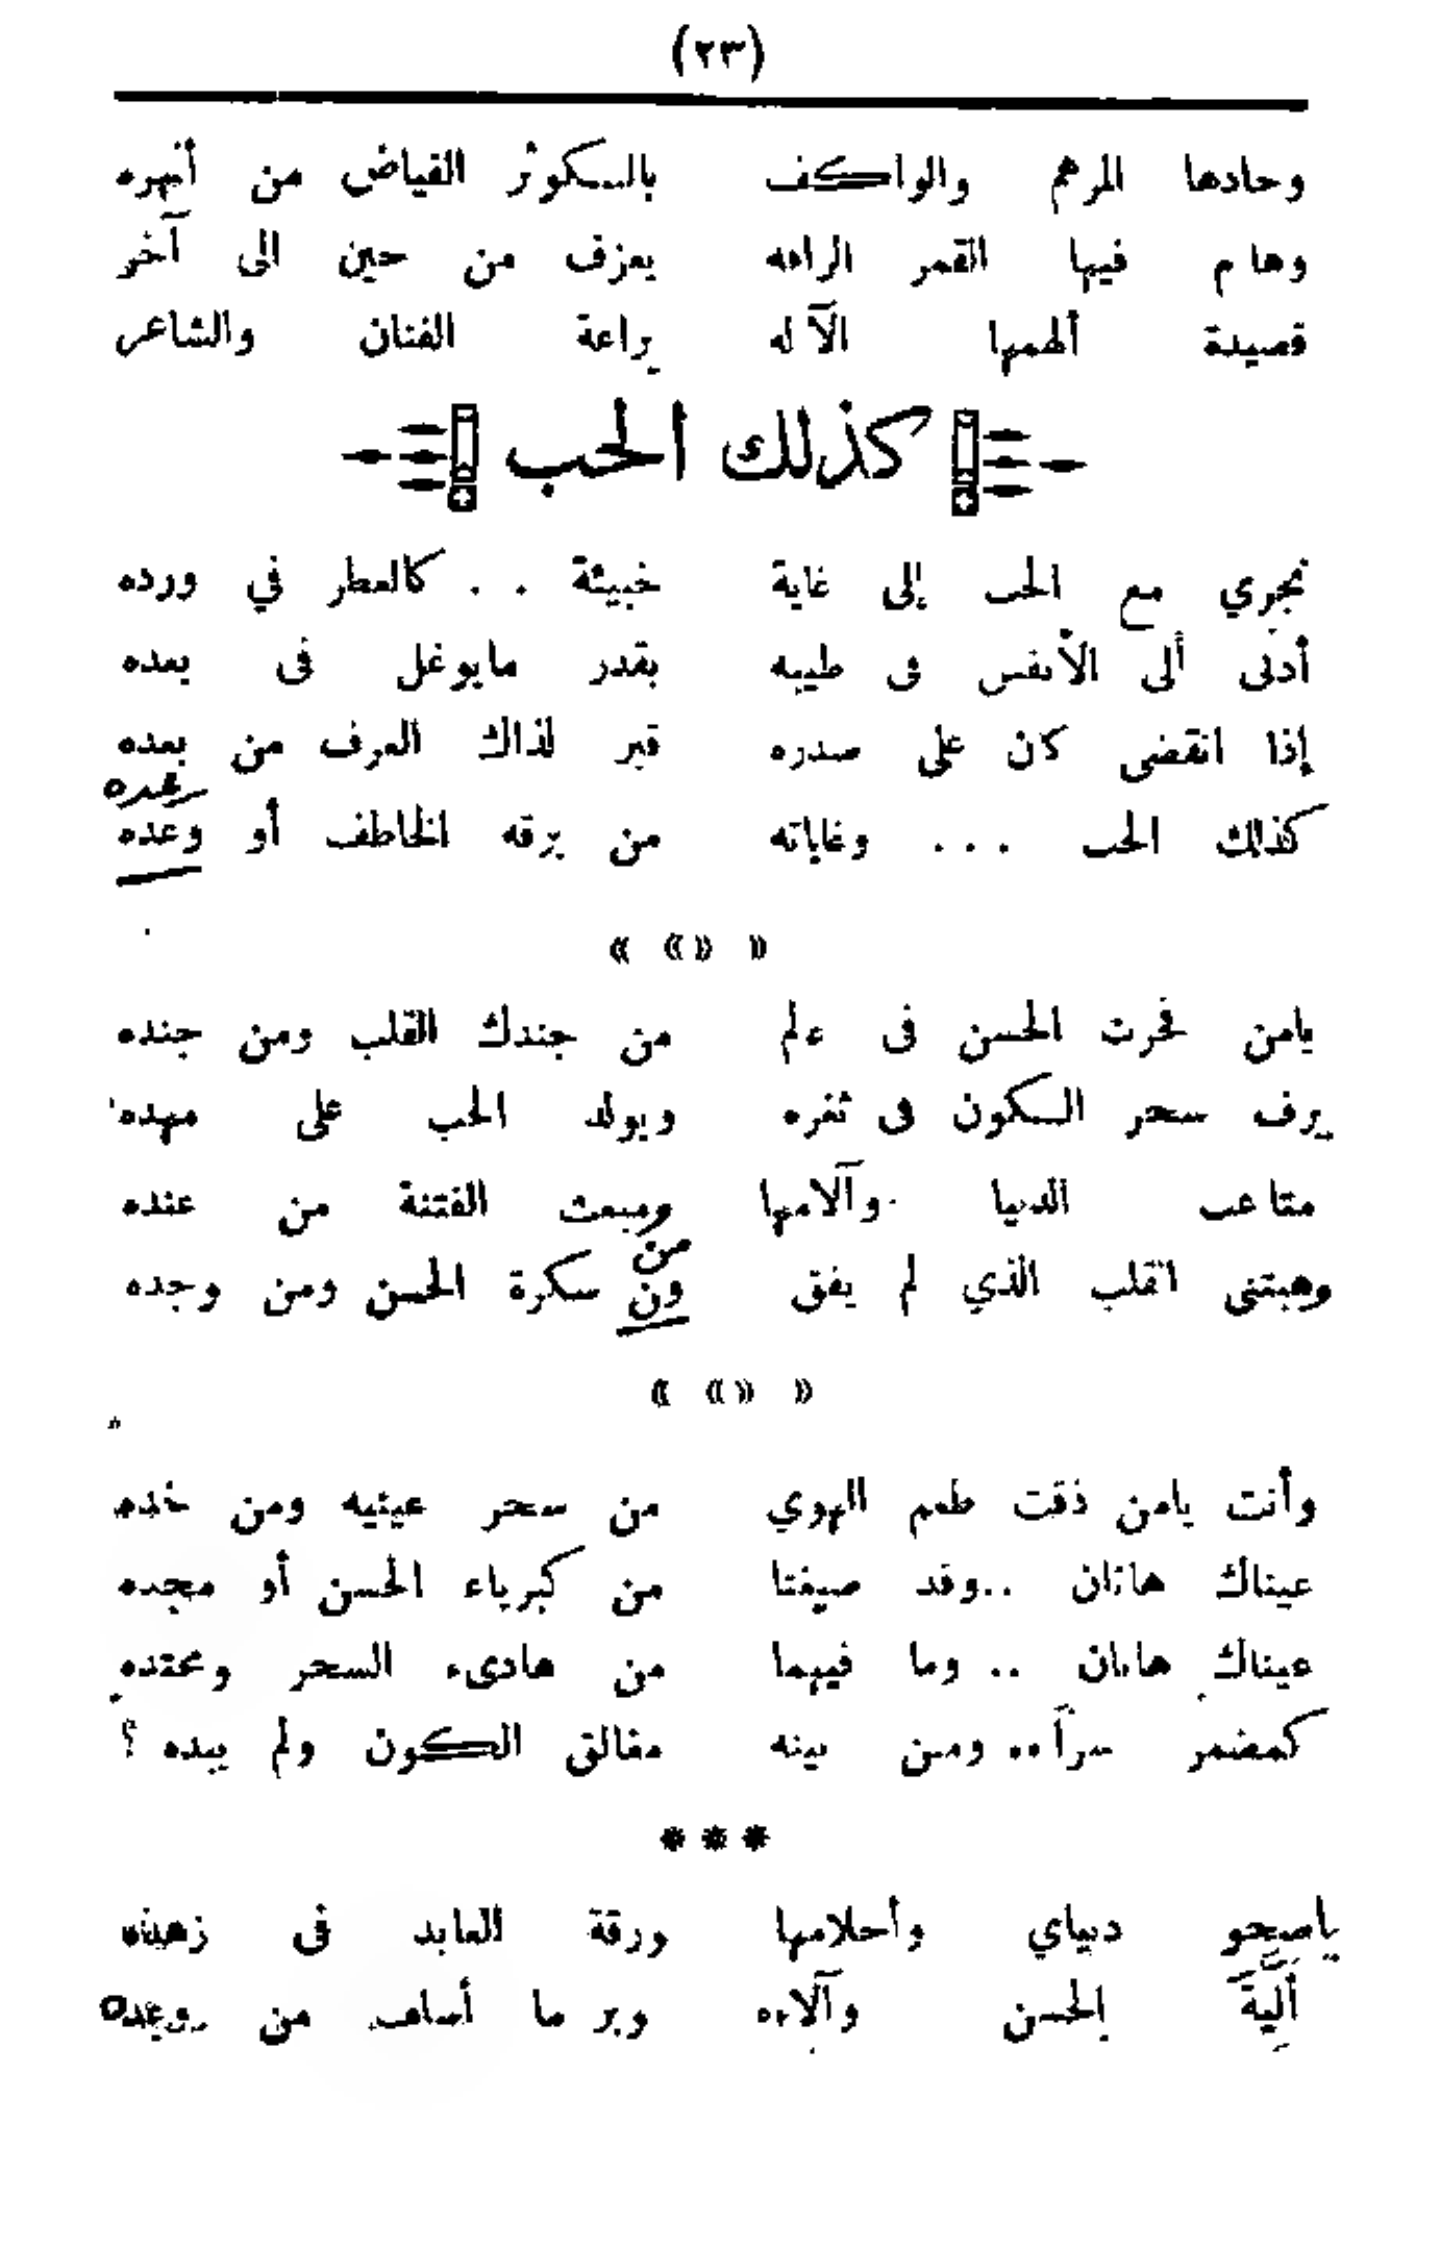 (٢٣)
وجادها المرهم والواكف بالكوثر الفياض من أنهره
وهام فيها القمر الراهه يعزف من حين الى آخر
قصيدة ألهمها الآله يراعة الفنان والشاعر
كذلك الحب
نجري مع الحب إلى غاية خبيثة . . كالعطر في ورده
أدنى ألى الأنفس فى طيبه بقدر مايوغل فى بعده
إذا انقضى كان على صدره قبر لذاك العرف من بعده
رعده
كذلك الحب . . . وغاياته من برقه الخاطف أو وعده
« «» »
يامن فخرت الحسن فى علم من جندك القلب ومن جنده
يرف سحر الكون فى ثغره ويولد الحب على مهده
متاعب الدنيا وآلامها ومبعث الفتنة من عنده
من
وهبتنى القلب الذي لم يفق ون سكرة الحسن ومن وجده
« «» »
وأنت يامن ذقت طعم الهوي من سحر عينيه ومن خده
عيناك هاتان ..وقد صيغتا من كبرياء الحسن أو مجده
عيناك هاتان .. وما فيهما من هادىء السحر ومحتده
كمضمر سرآ.. ومن بينه مغالق الكون ولم يبده ؟
***
ياصحو دنياي وأحلامها ورقة العابد فى زهده
ألية الحسن وآلاءه وبر ما أسلف من وعده